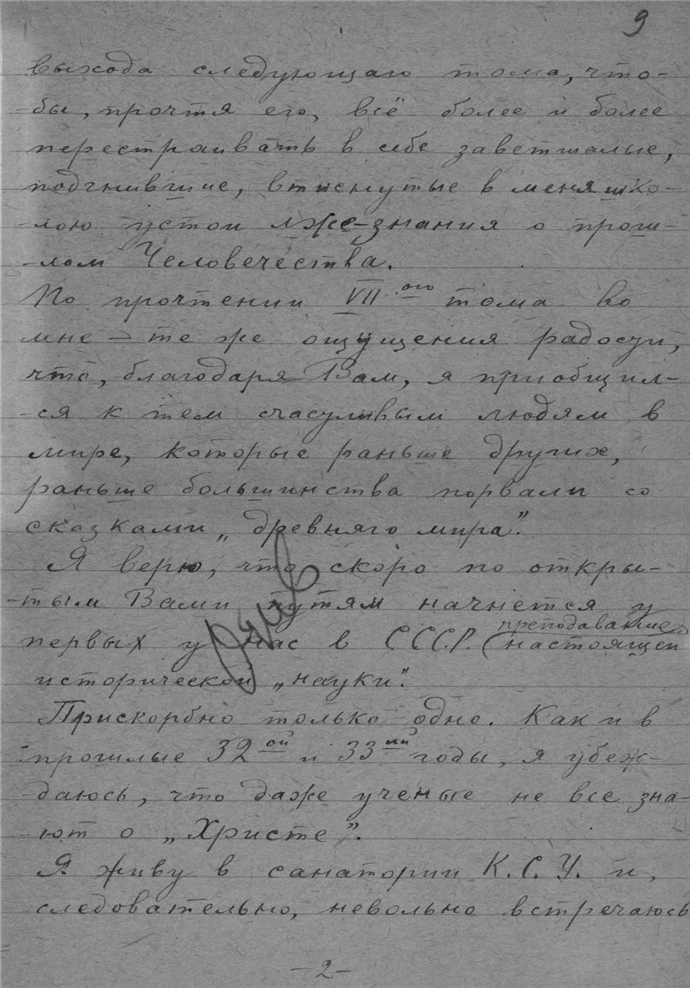 9
выхода следующаго тома, что-
-бы, прочтя его, всё более и более
перестраивать в себе заветшалые,
подгнившие, втиснутые в меня шко-
-лою устои лже-знания о прош-
-лом Человечества.
По прочтении VII-ого тома во
мне – те же ощущения радости,
что, благодаря Вам, я приобщил-
-ся к тем счастливым людям в
мире, которые раньше других,
раньше большинства порвали со
сказками „древняго мира".
Я верю, что скоро по откры-
-тым Вами путям начнется у
первых у нас в СССР. (преподавание
настоящей
исторической „науки".
Прискорбно только одно. Как и в
прошлые 32ой и 33ий годы, я убеж-
даюсь, что даже ученые не все зна-
-ют о „Христе".
Я живу в санатории К.С.У. и,
следовательно, невольно встречаюсь
-2-